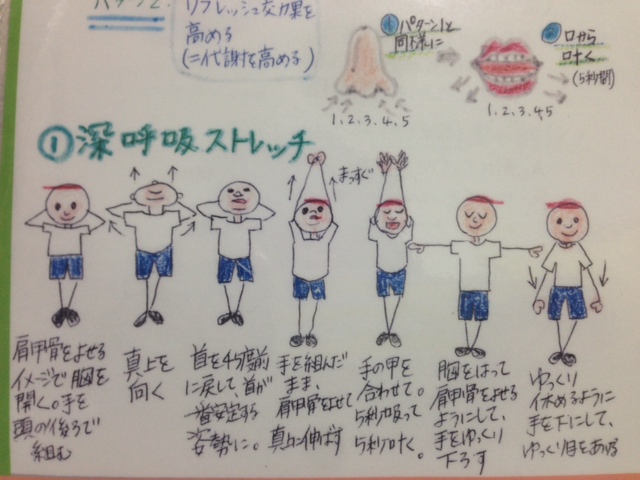 パターン2.
リフレッシュ効果を
高める
(=代謝を高める)
①パターン1と
同様に
②口から
吐く
(5秒間)
1、2、3、4、5
1、2、3、4、5
①深呼吸ストレッチ
まっすぐ
肩甲骨をよせる
イメージで胸を
開く。手を
頭の後ろで
組む
真上を
向く
首を45度前
に戻して、首が
一番安定する
姿勢に。
手を組んだ
まま、
肩甲骨をよせて
真上に伸ばす
手の甲を
合わせて。
5秒吸って
5秒吐く。
胸をはって
肩甲骨をよせる
ようにして、
手をゆっくり
下ろす
ゆっくり
休めるように
手を下にして、
ゆっくり目をあける